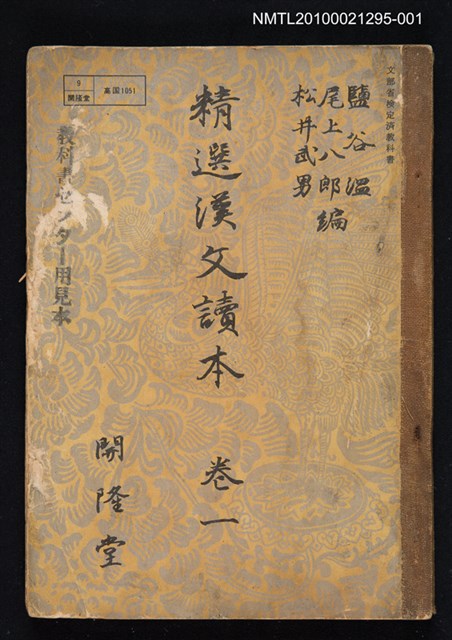 NMTL20100021295-001
文部省検定済教科書
鹽谷溫
尾上八郎編
松井武男
精選漢文讀本 卷一
9
開隆堂
高国1051
教科書センター用見本
開隆堂